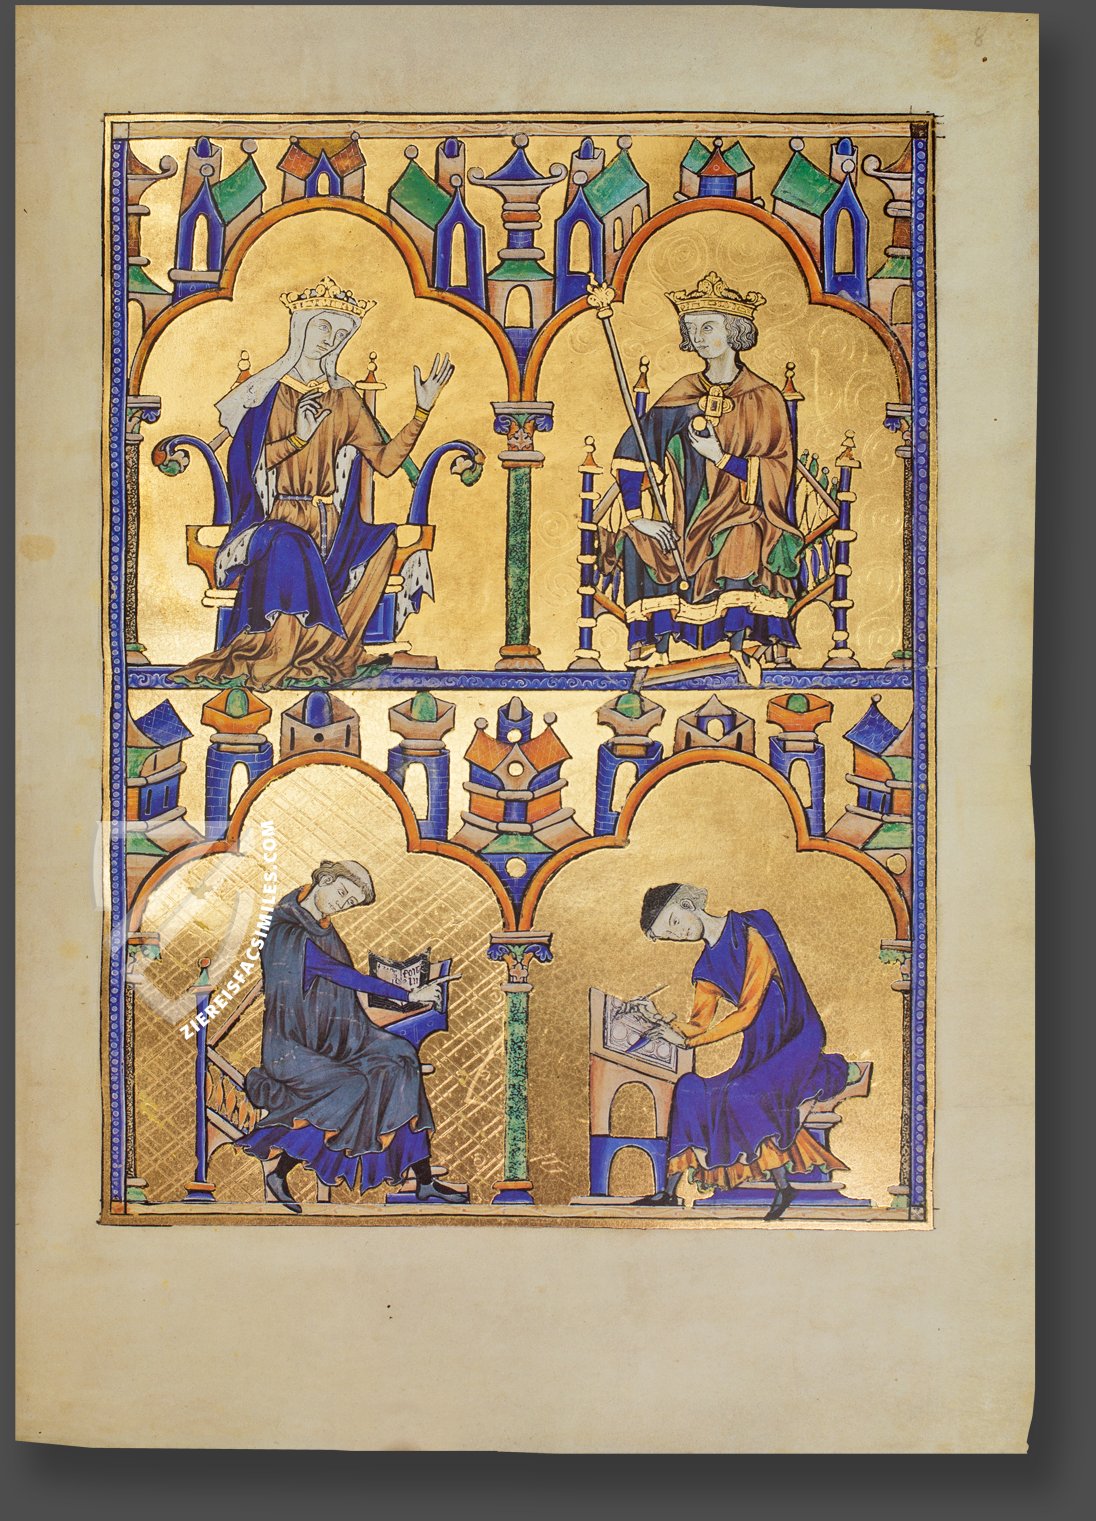 8
ZIEREISFACSIMILES.COM